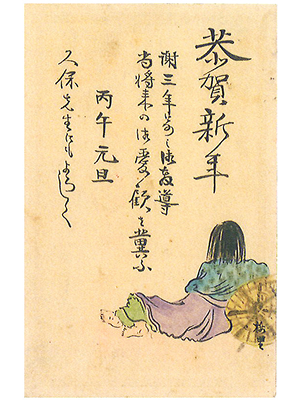 恭賀新年
謝三年間之御教導
尚将来の御愛顧を冀ふ
丙午元旦
久保先生にもよろしく